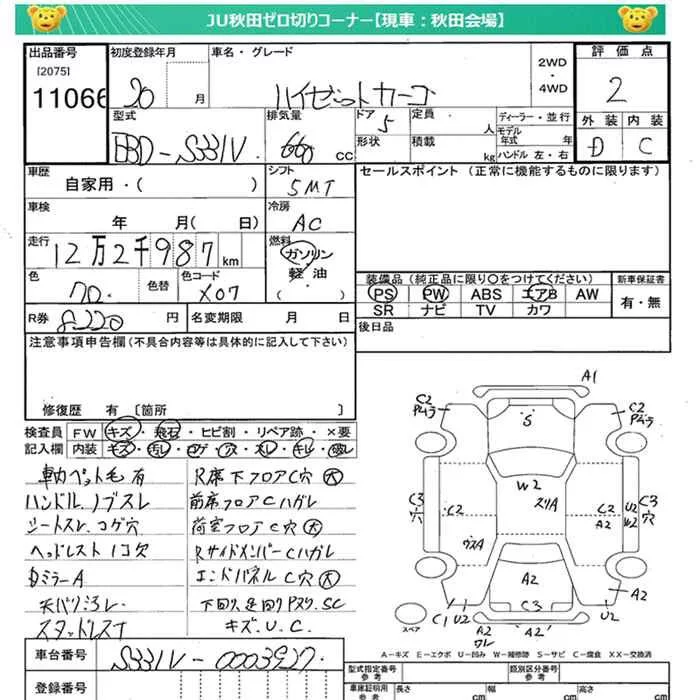 JU秋田ゼロ切りコーナー【現車：秋田会場】
出品番号
[2075]
11066
初度登録年月
20 月
車名・グレード
ハイゼットカーゴ
2WD
・
4WD
評価点
2
外装 内装
D C
型式
EBD-S331V
排気量
660 cc
ドア
5
形状
定員
人
積載
kg
ディーラー・並行
モデル年式 年
ハンドル 左・右
車歴
自家用・( )
シフト
5MT
車検
年 月( 日)
冷房
AC
走行
12万2千987 km
燃料
ガソリン
軽油
( )
色
色替
色コード
X07
R券
8220 円
名変期限 月 日
セールスポイント (正常に機能するものに限ります)
装備品 (純正品に限り○をつけてください)
PS PW ABS エアB AW
SR ナビ TV カワ
新車保証書
有・無
後日品
注意事項申告欄(不具合内容等は具体的に記入して下さい)
修復歴 有 〔箇所 〕
検査員
記入欄
FW キズ・飛石・ヒビ割・リペア跡・×要
内装 キズ・汚レ・コゲ・穴・スレ・キレ・破レ
車内ペット毛有
ハンドル.ノブスレ
シートスレ.コゲ穴
ヘッドレスト1コ欠
ミラーA
天バリ汚レ.
スタッドレス
R席下フロアC穴 大
前席フロアCハガレ
荷室フロアC穴 大
RサイドメンバーCハガレ
エンドパネルC穴 大
下回り,足回りPスリ.SC
キズ.U.C.
A1
C2
Pムラ
S
C2
Pムラ
W2
スリA
C3
穴
C2
C2
A2
U2
W2
C3
穴
A2
C3
A2
C1 U2
A2
ワレ
A2
U2
スペア
A－キズ E－エクボ U－凹み W－補修跡 S－サビ C－腐食 XX－交換済
車台番号
S331V-0003927
登録番号
型式指定番号
参考
類別区分番号
参考
車庫証明用
参考
長さ
cm
幅
cm
高さ
cm